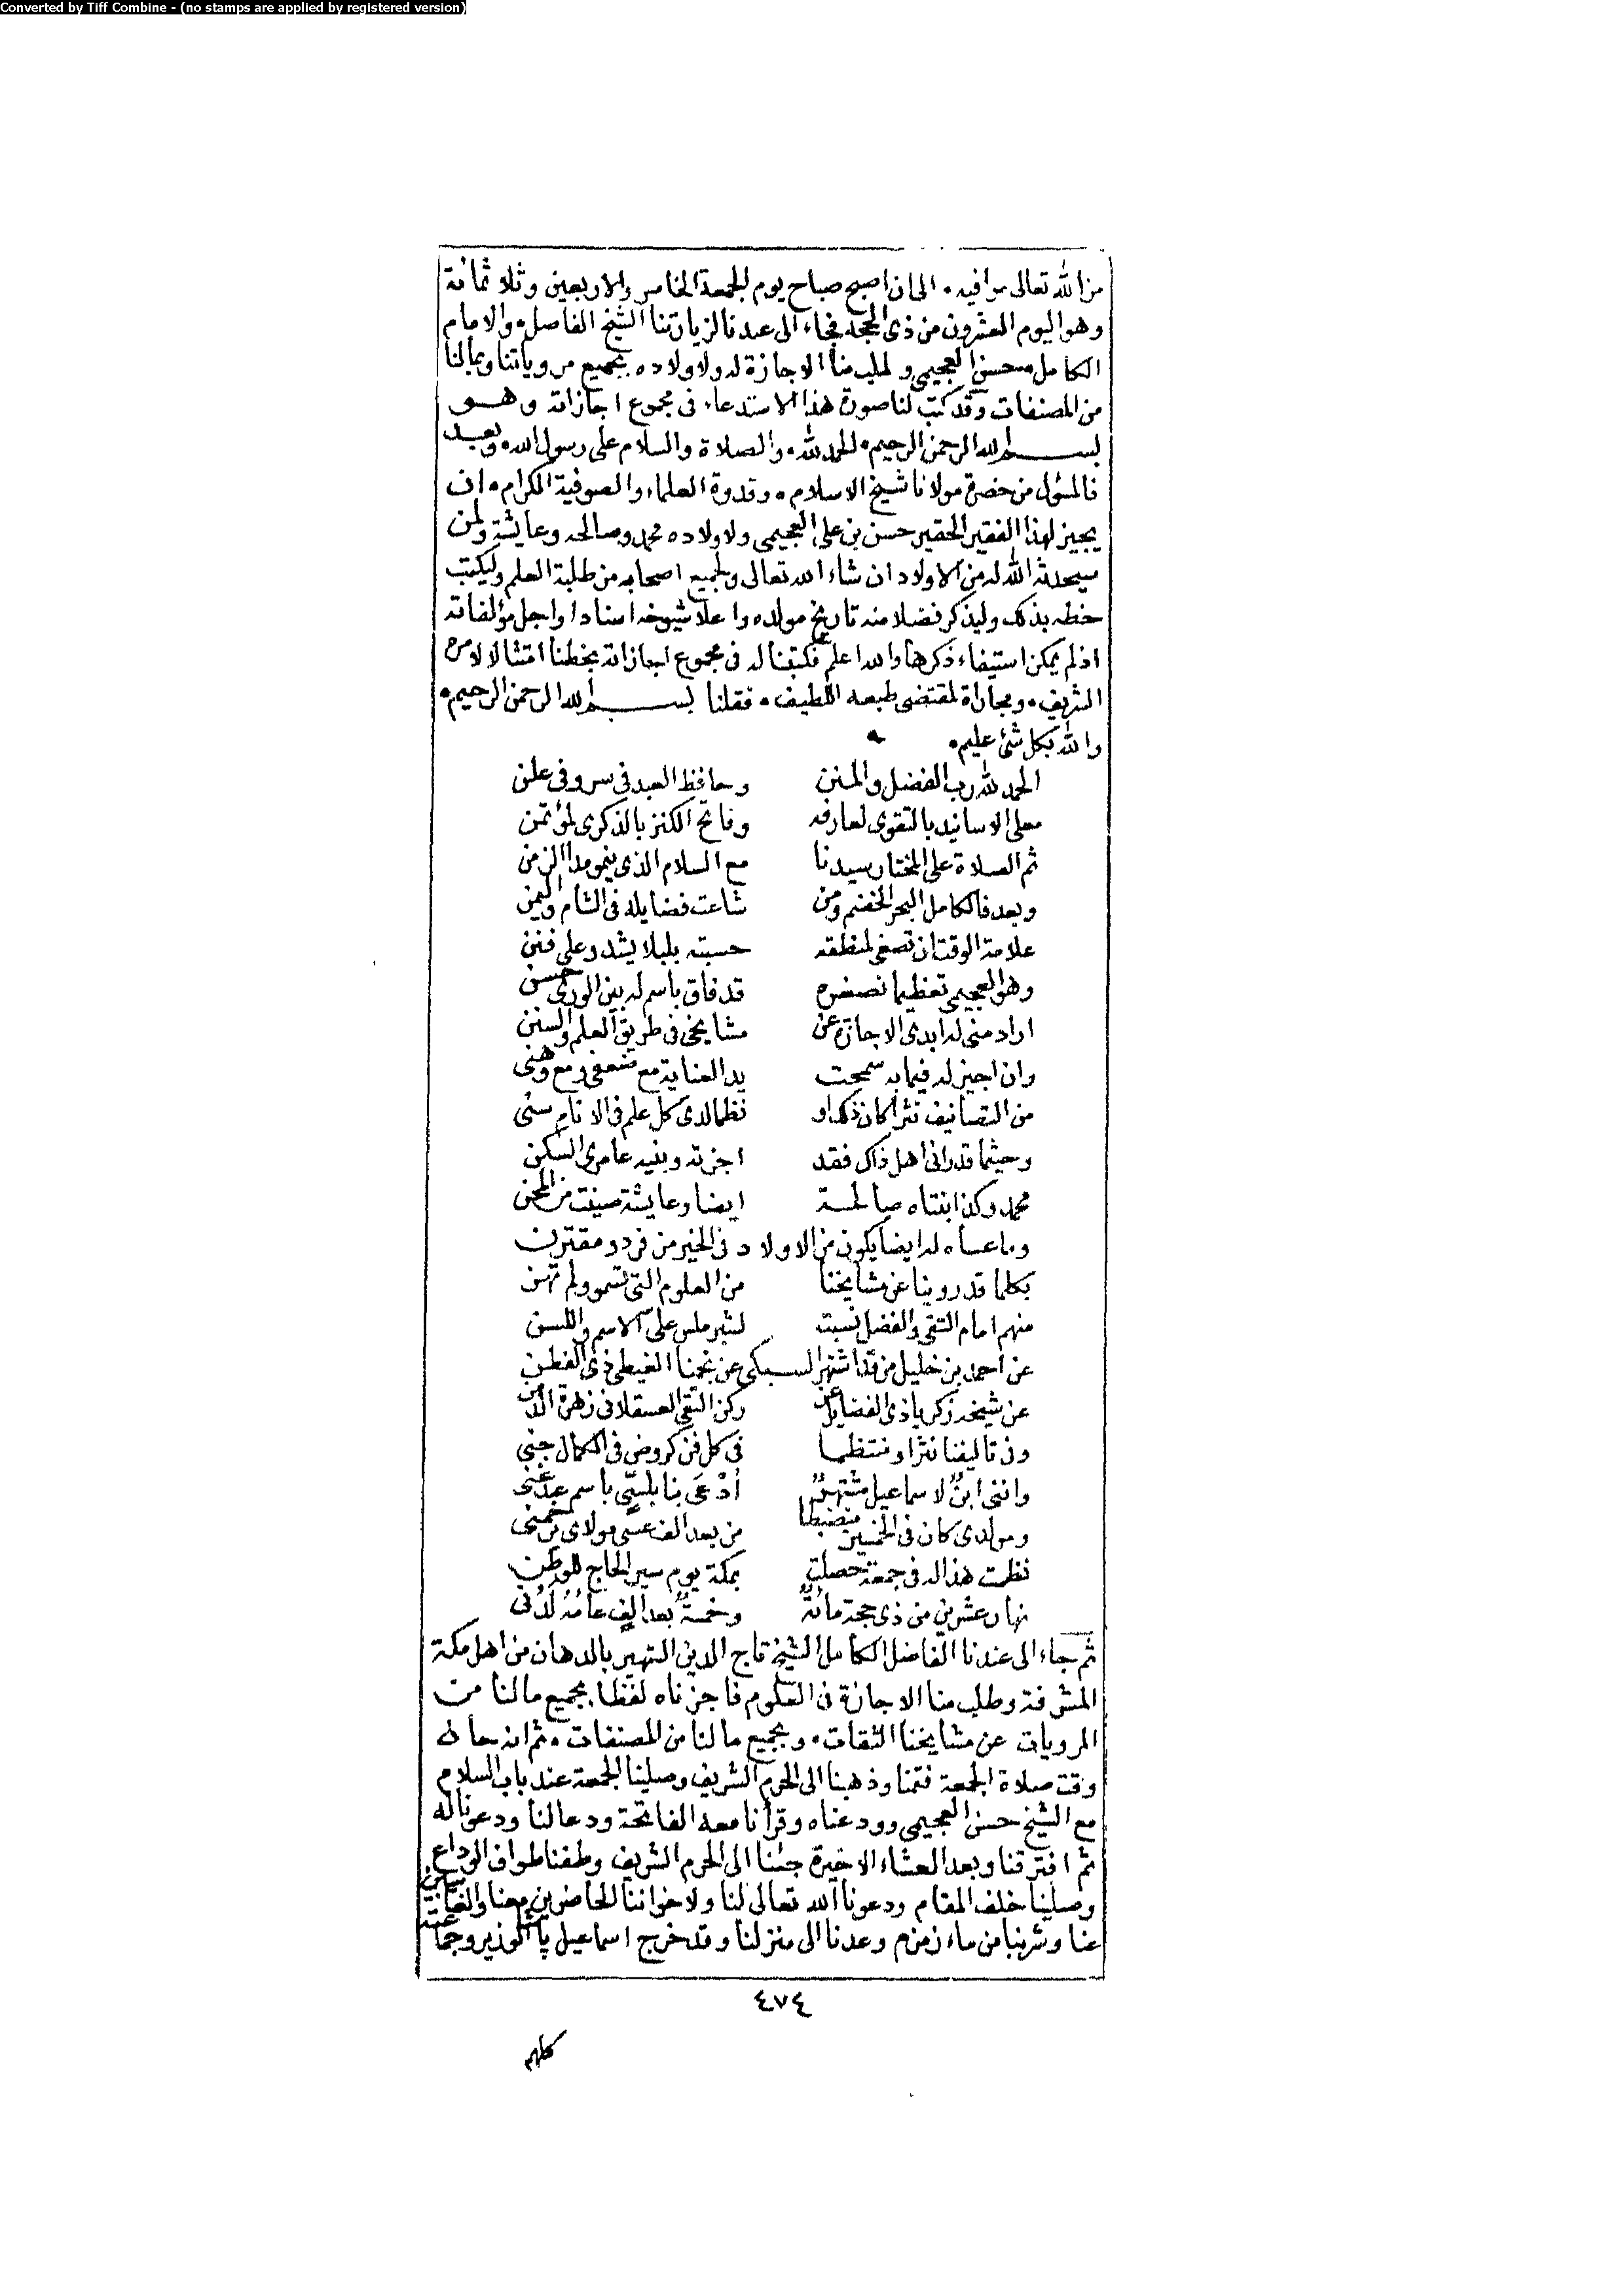 Converted by Tiff Combine - (no stamps are applied by registered version)
من الله تعالى موافيه • الى ان اصبح صباح يوم الجمعة الخامس والاربعين وثلاثمائة
وهو اليوم العشرون من ذى الحجه فجاء الى عندنا لزيارتنا الشيخ الفاضل • والامام
الكامل • حسن العجيمى وطلب منا الاجازة له ولاولاده بجميع مروياتنا وبمالنا
من المصنفات وقد كتب لنا صورة هذا الاستدعاء فى مجموع اجازاته وهو
بسم الله الرحمن الرحيم • الحمد لله • والصلاة والسلام على رسول الله • وبعد
فالمسؤل من حضرة مولانا شيخ الاسلام • وقدوة العلماء والصوفية الكرام • ان
يجيز لهذا الفقير الحقير حسن بن على العجيمى ولاولاده محمد وصالحه وعايشة ولمن
سيحدثه الله له من الاولاد ان شاء الله تعالى ولجميع اصحابه من طلبة العلم وليكتب
خطه بذلك وليذكر فضلا منه تاريخ مولده واعلا شيوخه اسنادا واجل مؤلفاته
اذ لم يمكن استيفاء ذكرها والله اعلم فكتبنا له فى مجموع اجازاته بخطنا امتثالا لامره
الشريف • ومجاراة لمقتضى طبعه اللطيف • فقلنا بسم الله الرحمن الرحيم •
والله بكل شئ عليم •
الحمد لله رب الفضل والمنن وحافظ العبد فى سر وفى علن
معلى الاسانيد بالتقوى لعارفه وفاتح الكنز بالذكرى لمؤتمن
ثم الصلاة على المختار سيدنا مع السلام الذى ينمو مدا الزمن
وبعد فالكامل البحر الخضم ومن شاعت فضايله فى الشام واليمن
علامة الوقت ان تصغى لمنطقه حسبته بلبلا يشدو على فنن
وهو العجيمى تعظيما نصغره قد فاق باسم له بين الورى حسن
اراد منى له ابدى الاجازة عن مشايخى فى طريق العلم والسنن
وان اجيز له فيما به سمحت يد العناية مع ضعفى ومع وهنى
من التصانيف نثرا كان ذلك او نظما لدى كل علم فى الانام سنى
وحيثما قد رانى اهل ذاك فقد اجزته وبنيه عامرى السكن
محمد وكذا ابنتاه صالحة ايضا وعايشة صينت من المحن
وما عساه له ايضا يكون من الاولاد فى الخير من فرد ومقترن
بكلما قد روينا عن مشايخنا من العلوم التى تسمو ولم تهن
منهم امام التقى والفضل نسبته لشبراملس على الاسم واللسن
عن احمد بن خليل من قد اشتهر السبكى عن نجمنا الغيطى ذى الفطن
عن شيخه زكريا ذى الفضايل عن ركن التقى العسقلانى زهرة
وفى تاليفنا نثرا ومنتظما فى كل فن كروض فى الكمال جنى
واننى ابنٌ لاسماعيل مشتهرٌ أُدْعَى بنابلسىٍّ باسم عبد غنى
ومولدى كان فى الخمسين منضبطا من بعد الف عسى مولاى يرحمنى
نظمت هذا له فى جمعة حصلت بمكة يوم سير الحاج للوطن
نهار عشرين من ذى حجة مائةٌ وخمسةٌ بعد الفٍ عامُهُ لَدُنى
ثم جاء الى عندنا الفاضل الكامل الشيخ تاج الدين الشهير بالدهان من اهل مكة
المشرفة وطلب منا الاجازة فى العلوم فاجزناه لفظا بجميع مالنا من
المرويات عن مشايخنا الثقات • وبجميع مالنا من المصنفات • ثم انه حان
وقت صلاة الجمعة فقمنا وذهبنا الى الحرم الشريف وصلينا الجمعة عند باب السلام
مع الشيخ حسن العجيمى وودعناه وقرأنا معه الفاتحة ودعا لنا ودعونا له
ثم افترقنا وبعد العشاء الاخيرة جئنا الى الحرم الشريف وطفنا طواف الوداع
وصلينا خلف المقام ودعونا الله تعالى لنا ولاخواننا الحاضرين معنا والغائبين
عنا وشربنا من ماء زمزم وعدنا الى منزلنا وقد خرج اسماعيل باشا الوزير وجماعته
٤٧٤
كلهم